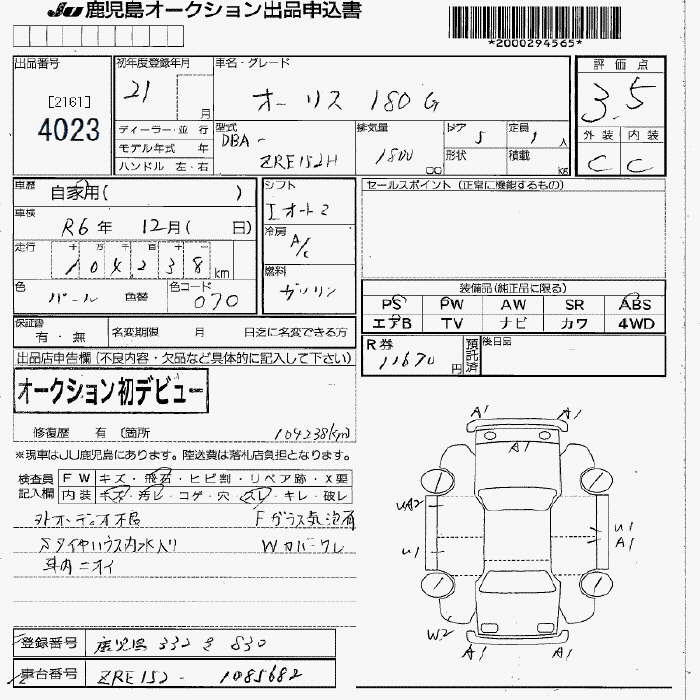 JU 鹿児島オークション出品申込書
*2000294565*
出品番号
[2161]
4023
初年度登録年月
21
月
ディーラー・並 行
モデル年式 年
ハンドル 左・右
車名・グレード
オーリス 180 G
型式
DBA-
ZRE152H
排気量
1800
cc
ドア 5
形状
定員
人
積載
kg
評価点
3.5
外装 内装
C C
車歴
自家用( )
車検
R6年 12月( 日)
走行
十 万 千 百 十
104238 km
色
パール 色替
色コード
070
シフト
Iオート2
冷房
A/C
燃料
ガソリン
セールスポイント (正常に機能するもの)
装備品(純正品に限る)
PS PW AW SR ABS
エアB TV ナビ カワ 4WD
保証書
有・無
名変期限 月 日迄に名変できる方
R券
11670円
預託済
後日品
出品店申告欄(不良内容・欠品など具体的に記入して下さい)
オークション初デビュー
修復歴 有 (箇所
104238(km)
※現車はJU鹿児島にあります。陸送費は落札店負担となります。
検査員
記入欄
FW キズ・飛石・ヒビ割・リペア跡・X要
内装 キズ・汚レ・コゲ・穴・スレ・キレ・破レ
外オーディオ不良
Fガラス気泡有
Sタイヤハウス内水入り
Wカバーワレ
車内ニオイ
A1 A1
A1
UA2
U1
U1
A1
W2
A1 A1
登録番号 鹿児島 332 さ 830
車台番号 ZRE152- 1085682